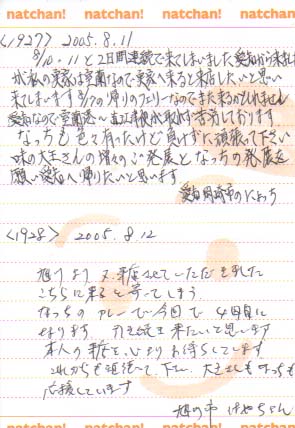 natchan! natchan! natchan! natchan!
<1927> 2005.8.11
8/10、11と2日間連続で来てしまいました。愛知から来ました
が私の実家は室蘭なので実家へ来ると来店したいと思い
来てしまいます 8/17の帰りのフェリーなのでまた来るかもしれません
愛知なので室蘭港〜直江津便
なっちも色々有ったけど負けずに頑張って下さい
味の大王さんの益々のご発展となっちの発展を
願い愛知へ帰りたいと思います
愛知岡崎市のにゃっち
<1928> 2005.8.12
旭川より又来店させていただきました
こちらに来ると寄ってしまう
なっちのカレーで今回で4回目に
なります。 来たいと思います
本人の来店を心よりお待ちしています
これからも頑張って下さい 大王さんもなっちも
応援しています
旭川市
natchan! natchan! natchan! natchan!